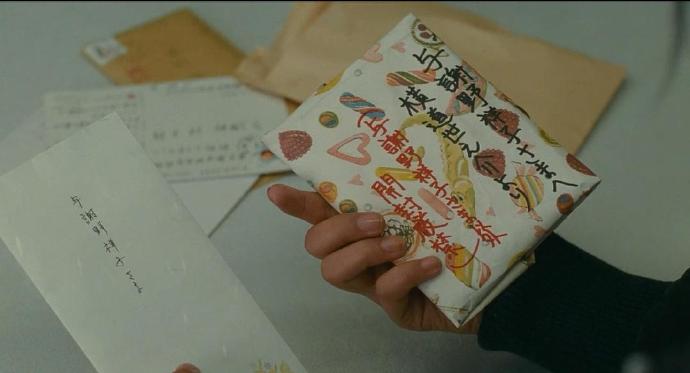 与謝野祥子さまへ
横道世之介より
与謝野祥子さま以外
開封厳禁
与謝野祥子さま